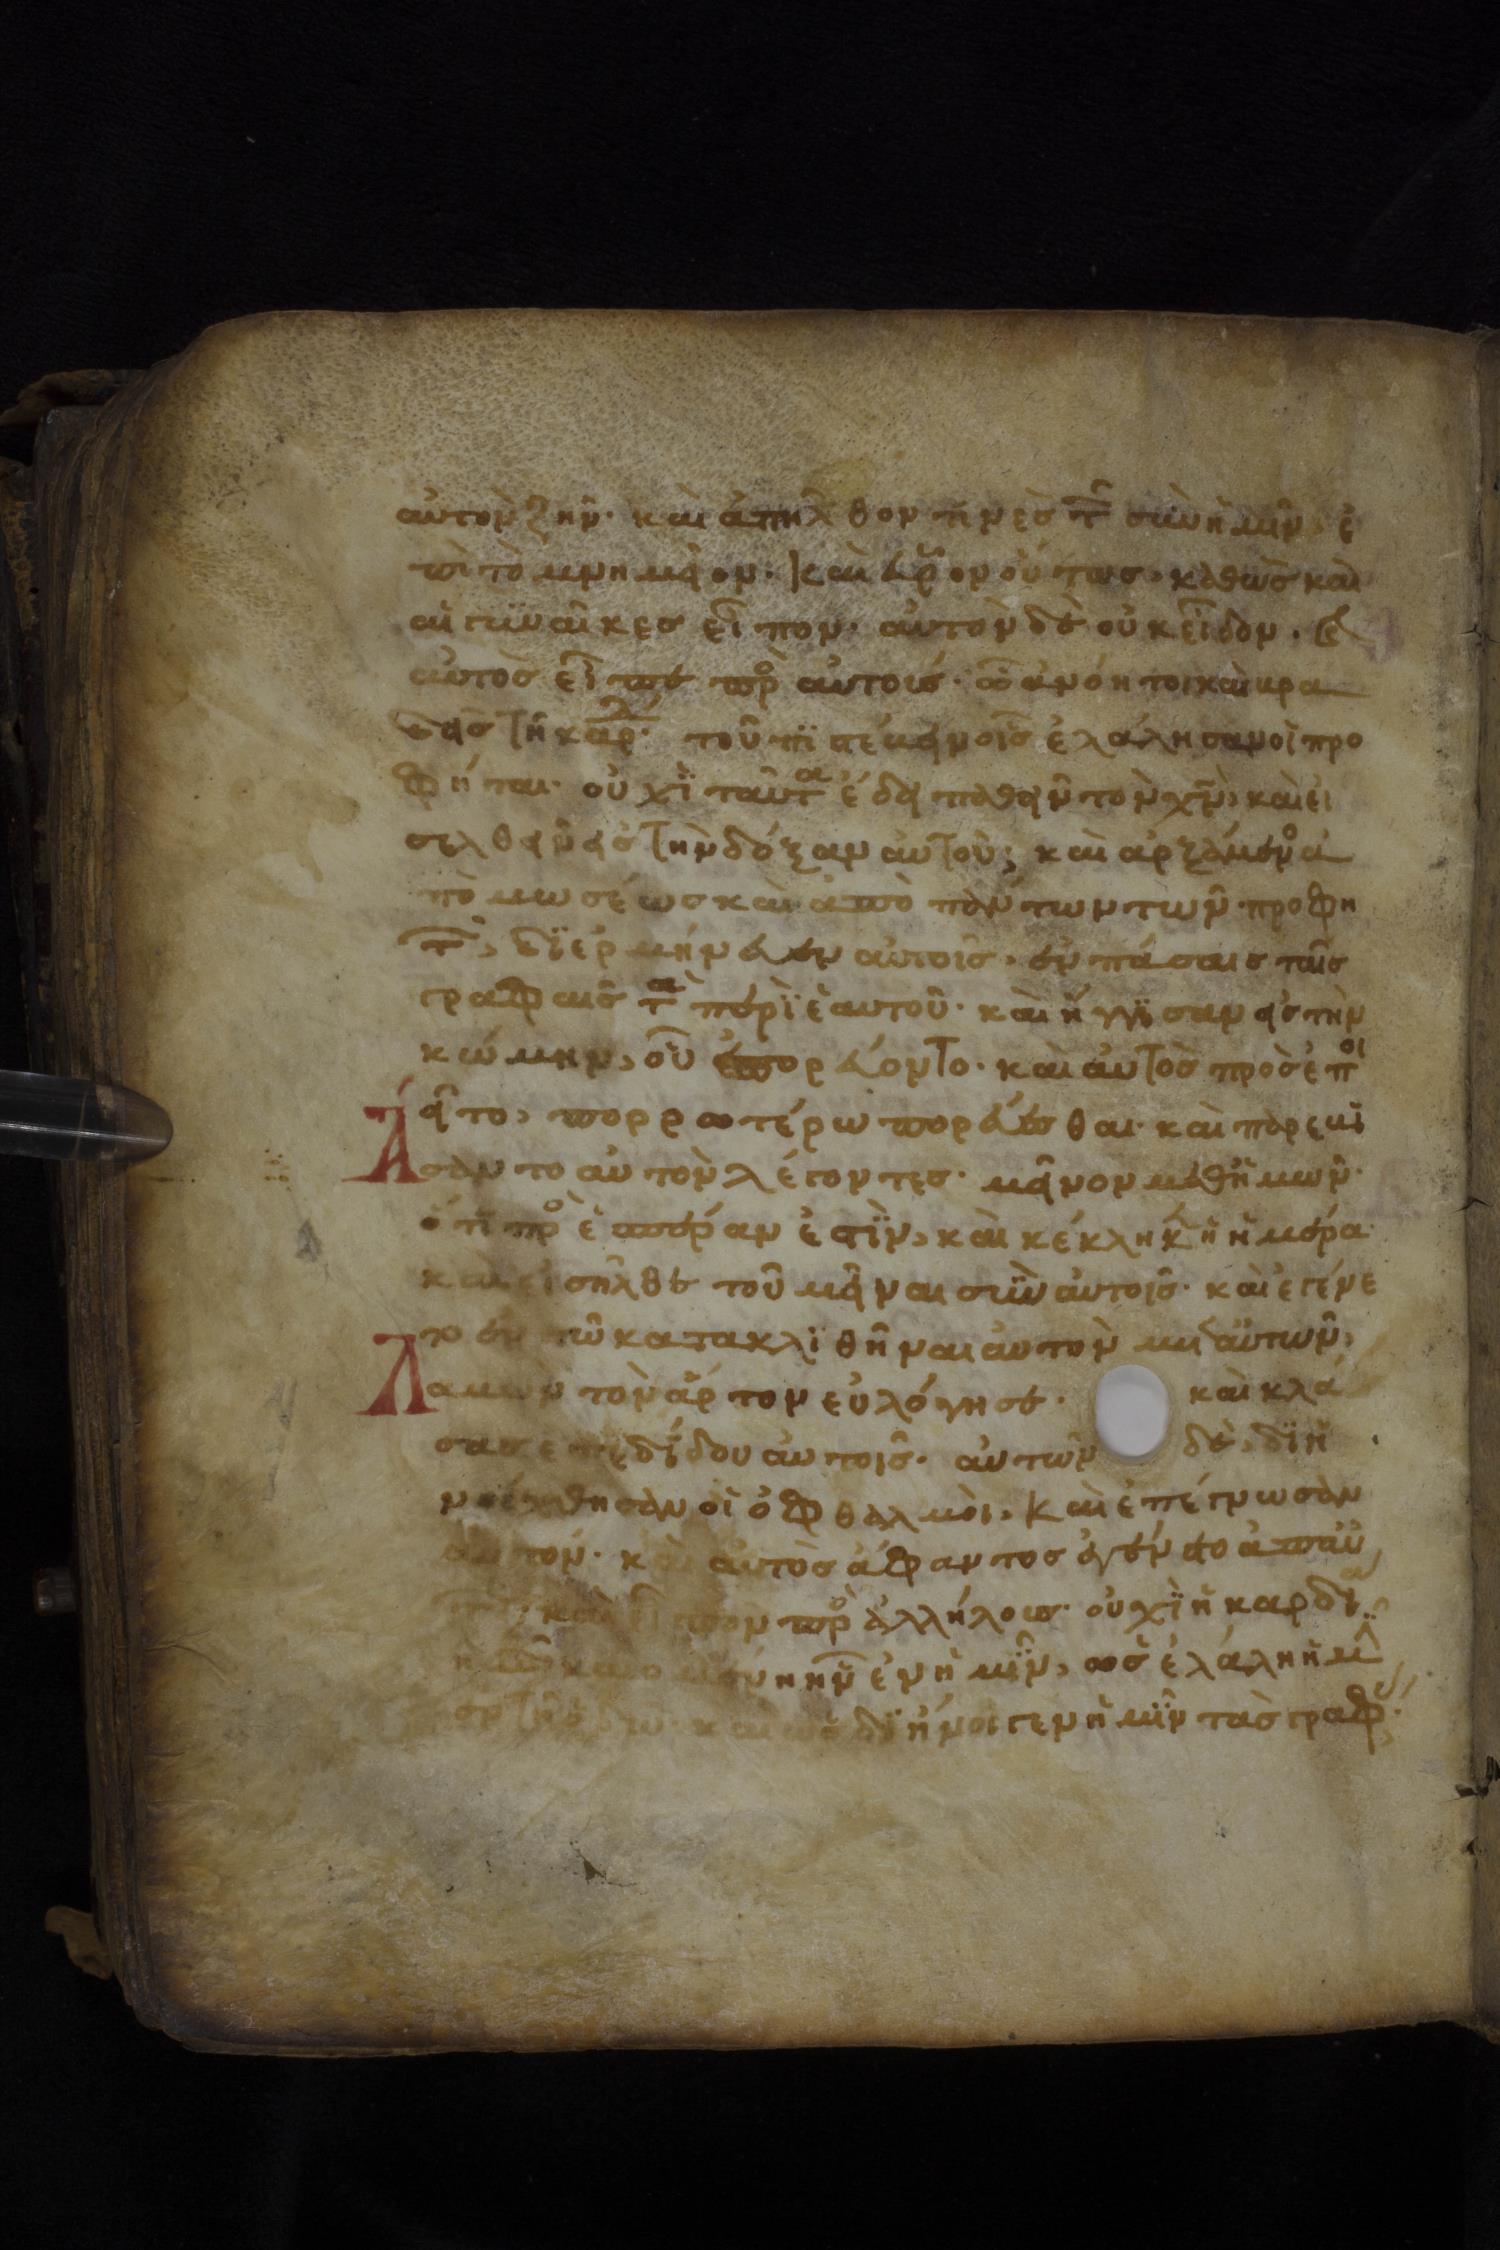 αὐτὸν ζῆν· καὶ ἀπῆλθον τινὲς τ̑ σὺν ἡμῖν, ἐ
πὶ τὸ μνημεῖον· καὶ εὗρον οὕτως· καθὼς καὶ
αἱ γυναῖκες εἶπον· αὐτὸν δὲ οὐκ εἶδον.
αὐτὸς εἶπε πρ̊ αὐτούς· ὦ ἀνόητοι καὶ βρα
δεῖς τῆ καρ· τοῦ πιστεύειν οἷς ἐλάλησαν οἱ προ
φῆται· οὐχὶ ταῦτα ἔδει παθεῖν τὸν χν, καὶ εἰ
σελθεῖν εἰς τὴν δόξαν αὐτοῦ; καὶ ἀρξάμενο ἀ
πὸ μωσέως καὶ ἀπὸ πάντων τῶν προφη
τ, διερμήνευεν αὐτοῖς, ἐν πάσαις ταῖς
γραφαῖς τὰ περὶ ἑαυτοῦ· καὶ ἤγγισαν εἰς τὴν
κώμην, οὗ ἐπορεύοντο· καὶ αὐτὸς προσεποι
εῖτο, πορρωτέρω πορεύεσθαι· καὶ παρεβιά
σαντο αὐτὸν λέγοντες· μεῖνον μεθ ἡμῶν·
ὅτι πρὸ ἑσπέραν ἐστὶν, καὶ κέκληκ ἡ ἡμέρα·
καὶ εἰσῆλθε τοῦ μεῖναι σὺν αὐτοῖς· καὶ ἐγένε
το ἐν τῶ κατακλιθῆναι αὐτὸν μετ αὐτῶν,
λαβὼν τὸν ἄρτον εὐλόγησε· καὶ κλά
σας ἐπεδίδου αὐτοῖς· αὐτῶν δὲ, διη
νοίχθησαν οἱ ὀφθαλμοὶ, καὶ ἐπέγνωσαν
αὐτόν· καὶ αὐτὸς ἄφαντος ἐγένετο ἀπ αὐ
καὶ εἶπον πρ̊ ἀλλήλους· οὐχὶ ἡ καρδία
καιομένη ἦν ἐν ἡμῖν, ὡς ἐλάλη ἡμ
ἐν τῆ ὁδῶ· καὶ ὡς διήνοιγεν ἡμῖν τὰς γραφ·